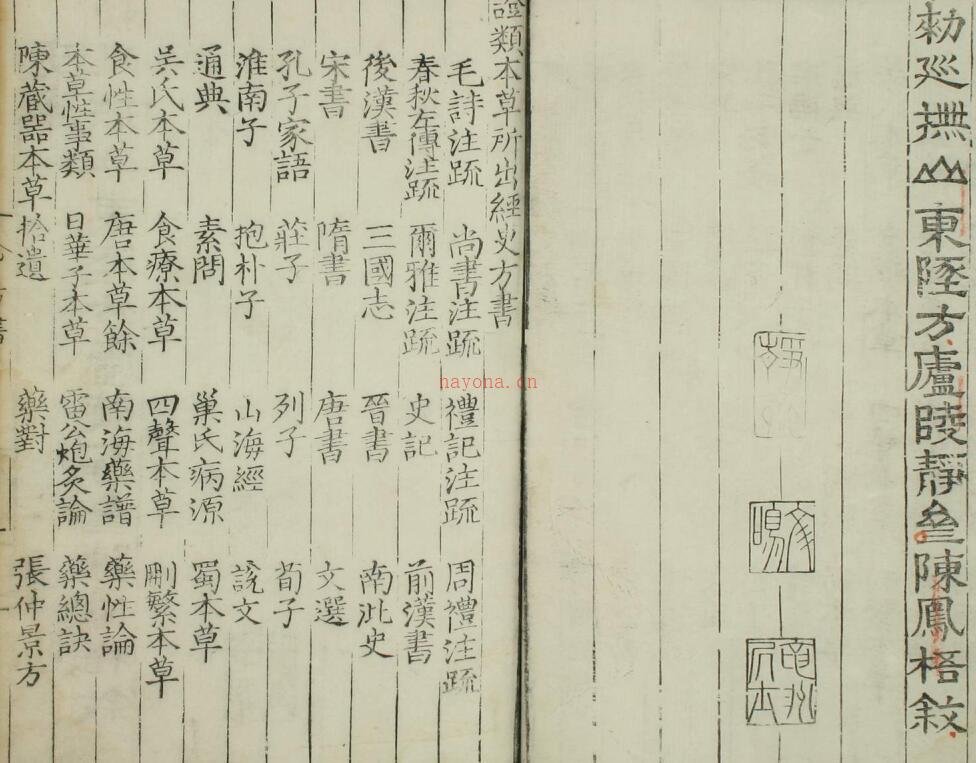 勑巡撫山東墬方廬陵靜亝陳鳳梧敘
證類本草所出經史方書
毛詩注䟽 尚書注䟽 禮記注䟽 周禮注䟽
春秋左傳注䟽 爾雅注䟽 史記 前漢書
後漢書 三國志 晉書 南北史
宋書 隋書 唐書 文選
孔子家語 莊子 列子 荀子
淮南子 抱朴子 山海經 說文
通典 素問 巢氏病源 蜀本草
吳氏本草 食療本草 四聲本草 刪繁本草
食性本草 唐本草餘 南海藥譜 藥性論
本草性事類 日華子本草 雷公炮炙論 藥總訣
陳藏器本草拾遺 藥對 張仲景方
hayona.cn